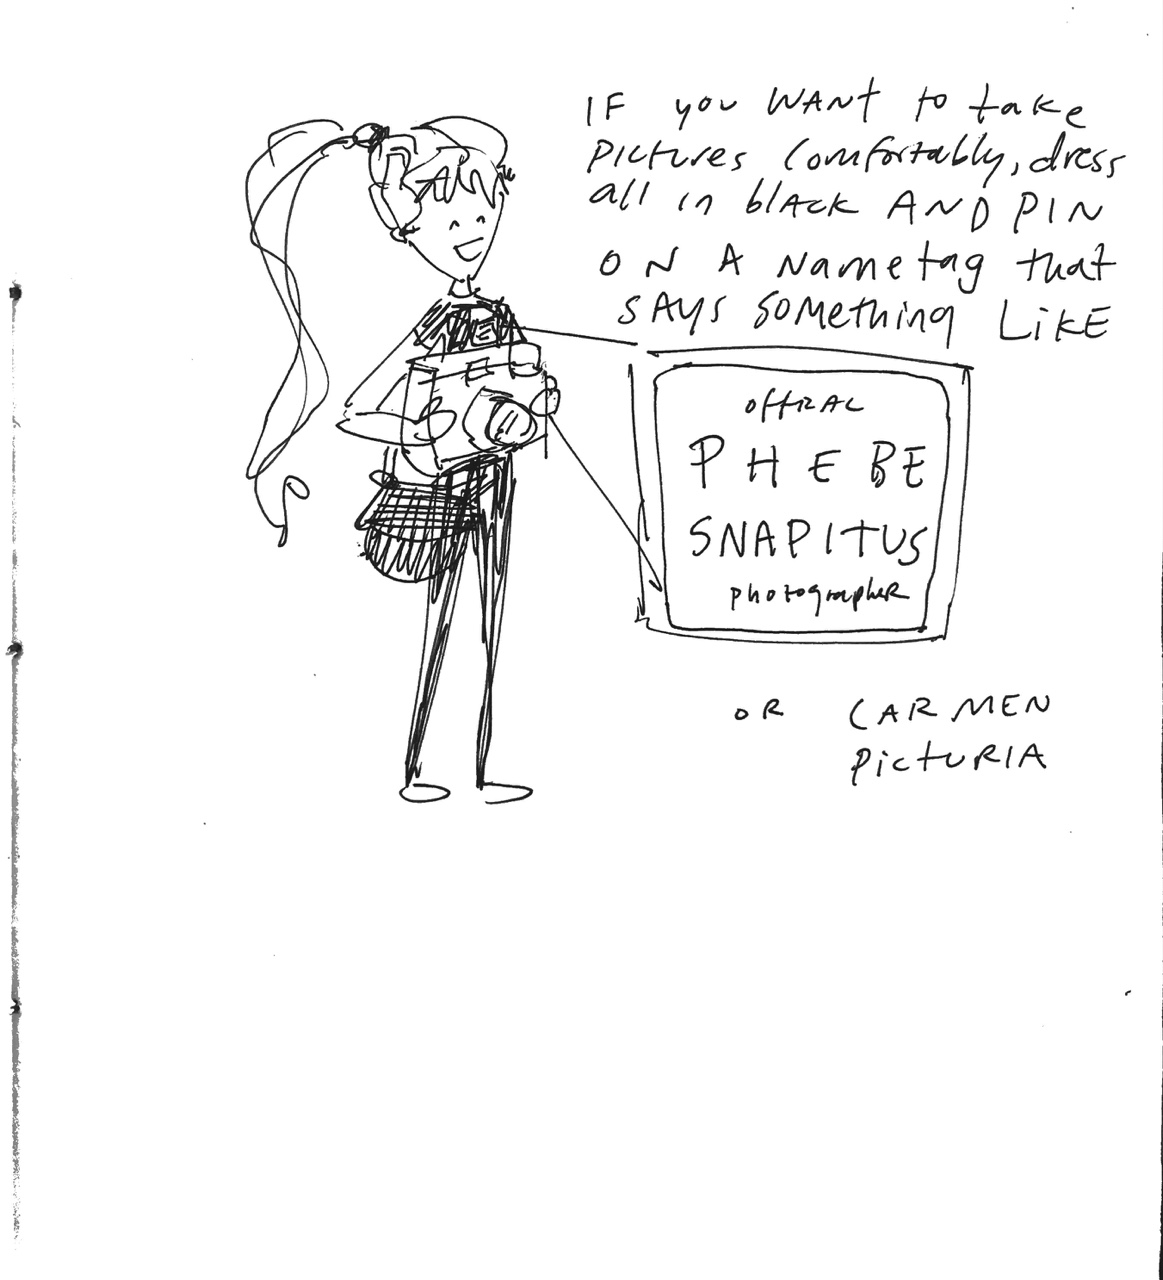 IF you WANt to take
PIctures Comfortably, dress
all in blAck AND PIN
ON A NAme tag that
SAYS SOMething LIKE
PHEBE
SNAPITUS
photographer
OR CARMEN
PictURIA